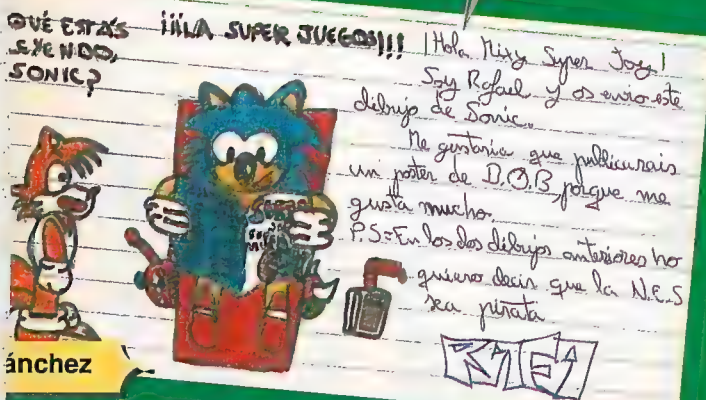 QUÉ ESTÁS
LEYENDO,
SONIC?
¡¡¡LA SUPER JUEGOS!!!
¡Hola Mixy Super Joy!
Soy Rafael y os envio este
dibujo de Sonic.
Me gustaria que publicarais
un poster de B.O.B, porque me
gusta mucho.
P.S=En los dos dibujos anteriores no
quiero decir que la N.E.S
sea pirata
SUPER
ánchez